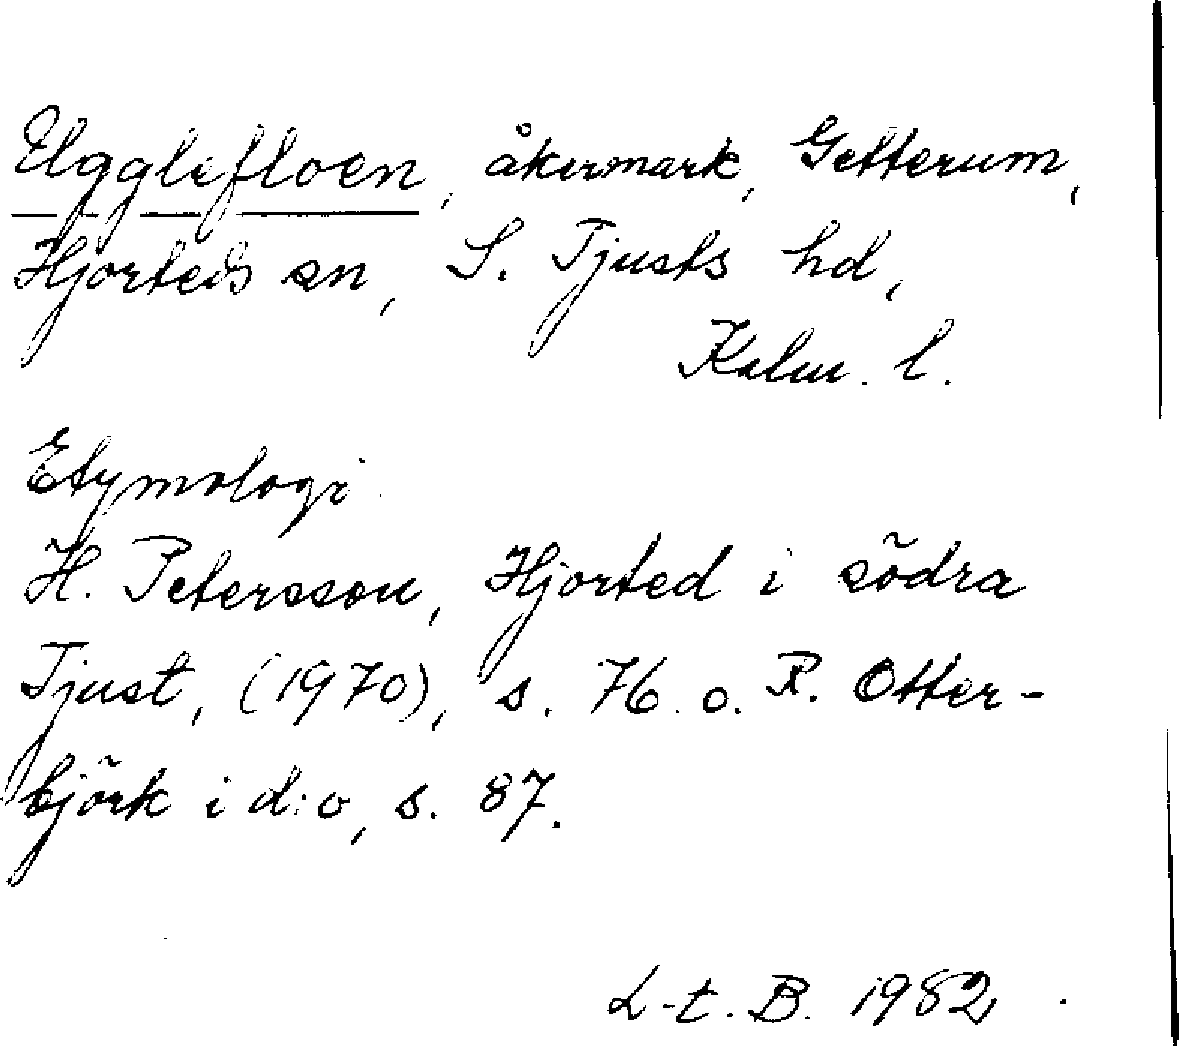 Ugglefloen, åkermark, Getterum,
Hjorteds sn, S. Tjusts hd,
Kalm. l.
Etymologi.
H. Petersson, Hjorted i södra
Tjust, (1970), s. 76. o. R. Otter-
björk i d:o, s. 87.
L-t. B. 1982.